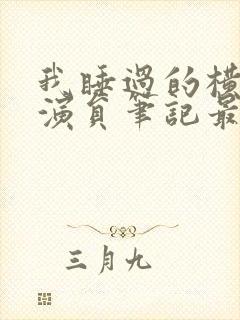 我睡過的橫
演員筆記最
三月九